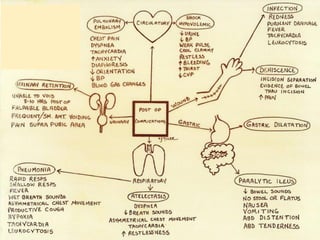 PULMONARY
EMBOLISM
CIRCULATORY
SHOCK
HYPOVOLEMIC
CHEST PAIN
DYSPNEA
TACHYCARDIA
↑ ANXIETY
DIAPHORESIS
↓ ORIENTATION
↓ BP
BLOOD GAS CHANGES
↓ URINE
↓ BP
WEAK PULSE
COOL CLAMMY
RESTLESS
↑ BLEEDING
↑ THIRST
↓ CVP
INFECTION
REDNESS
PURULENT DRAINAGE
FEVER
TACHYCARDIA
LEUKOCYTOSIS
DEHISCENCE
INCISION SEPARATION
EVIDENCE OF BOWEL
THRU INCISION
↑ PAIN
WOUND
URINARY RETENTION
UNABLE TO VOID
8-10 HRS POST OP
PALPABLE BLADDER
FREQUENT/SM. AMT. VOIDING
PAIN SUPRA PUBIC AREA
URINARY
POST OP
COMPLICATIONS
GASTRIC
GASTRIC DILATATION
PNEUMONIA
RAPID RESPS
SHALLOW RESPS
FEVER
WET BREATH SOUNDS
ASYMMETRICAL CHEST MOVEMENT
PRODUCTIVE COUGH
HYPOXIA
TACHYCARDIA
LEUKOCYTOSIS
RESPIRATORY
ATELECTASIS
DYSPNEA
↓ BREATH SOUNDS
ASYMMETRICAL CHEST MOVEMENT
TACHYCARDIA
↑ RESTLESSNESS
PARALYTIC ILEUS
↓ BOWEL SOUNDS
NO STOOL OR FLATUS
NAUSEA
VOMITING
ABD DISTENTION
ABD TENDERNESS